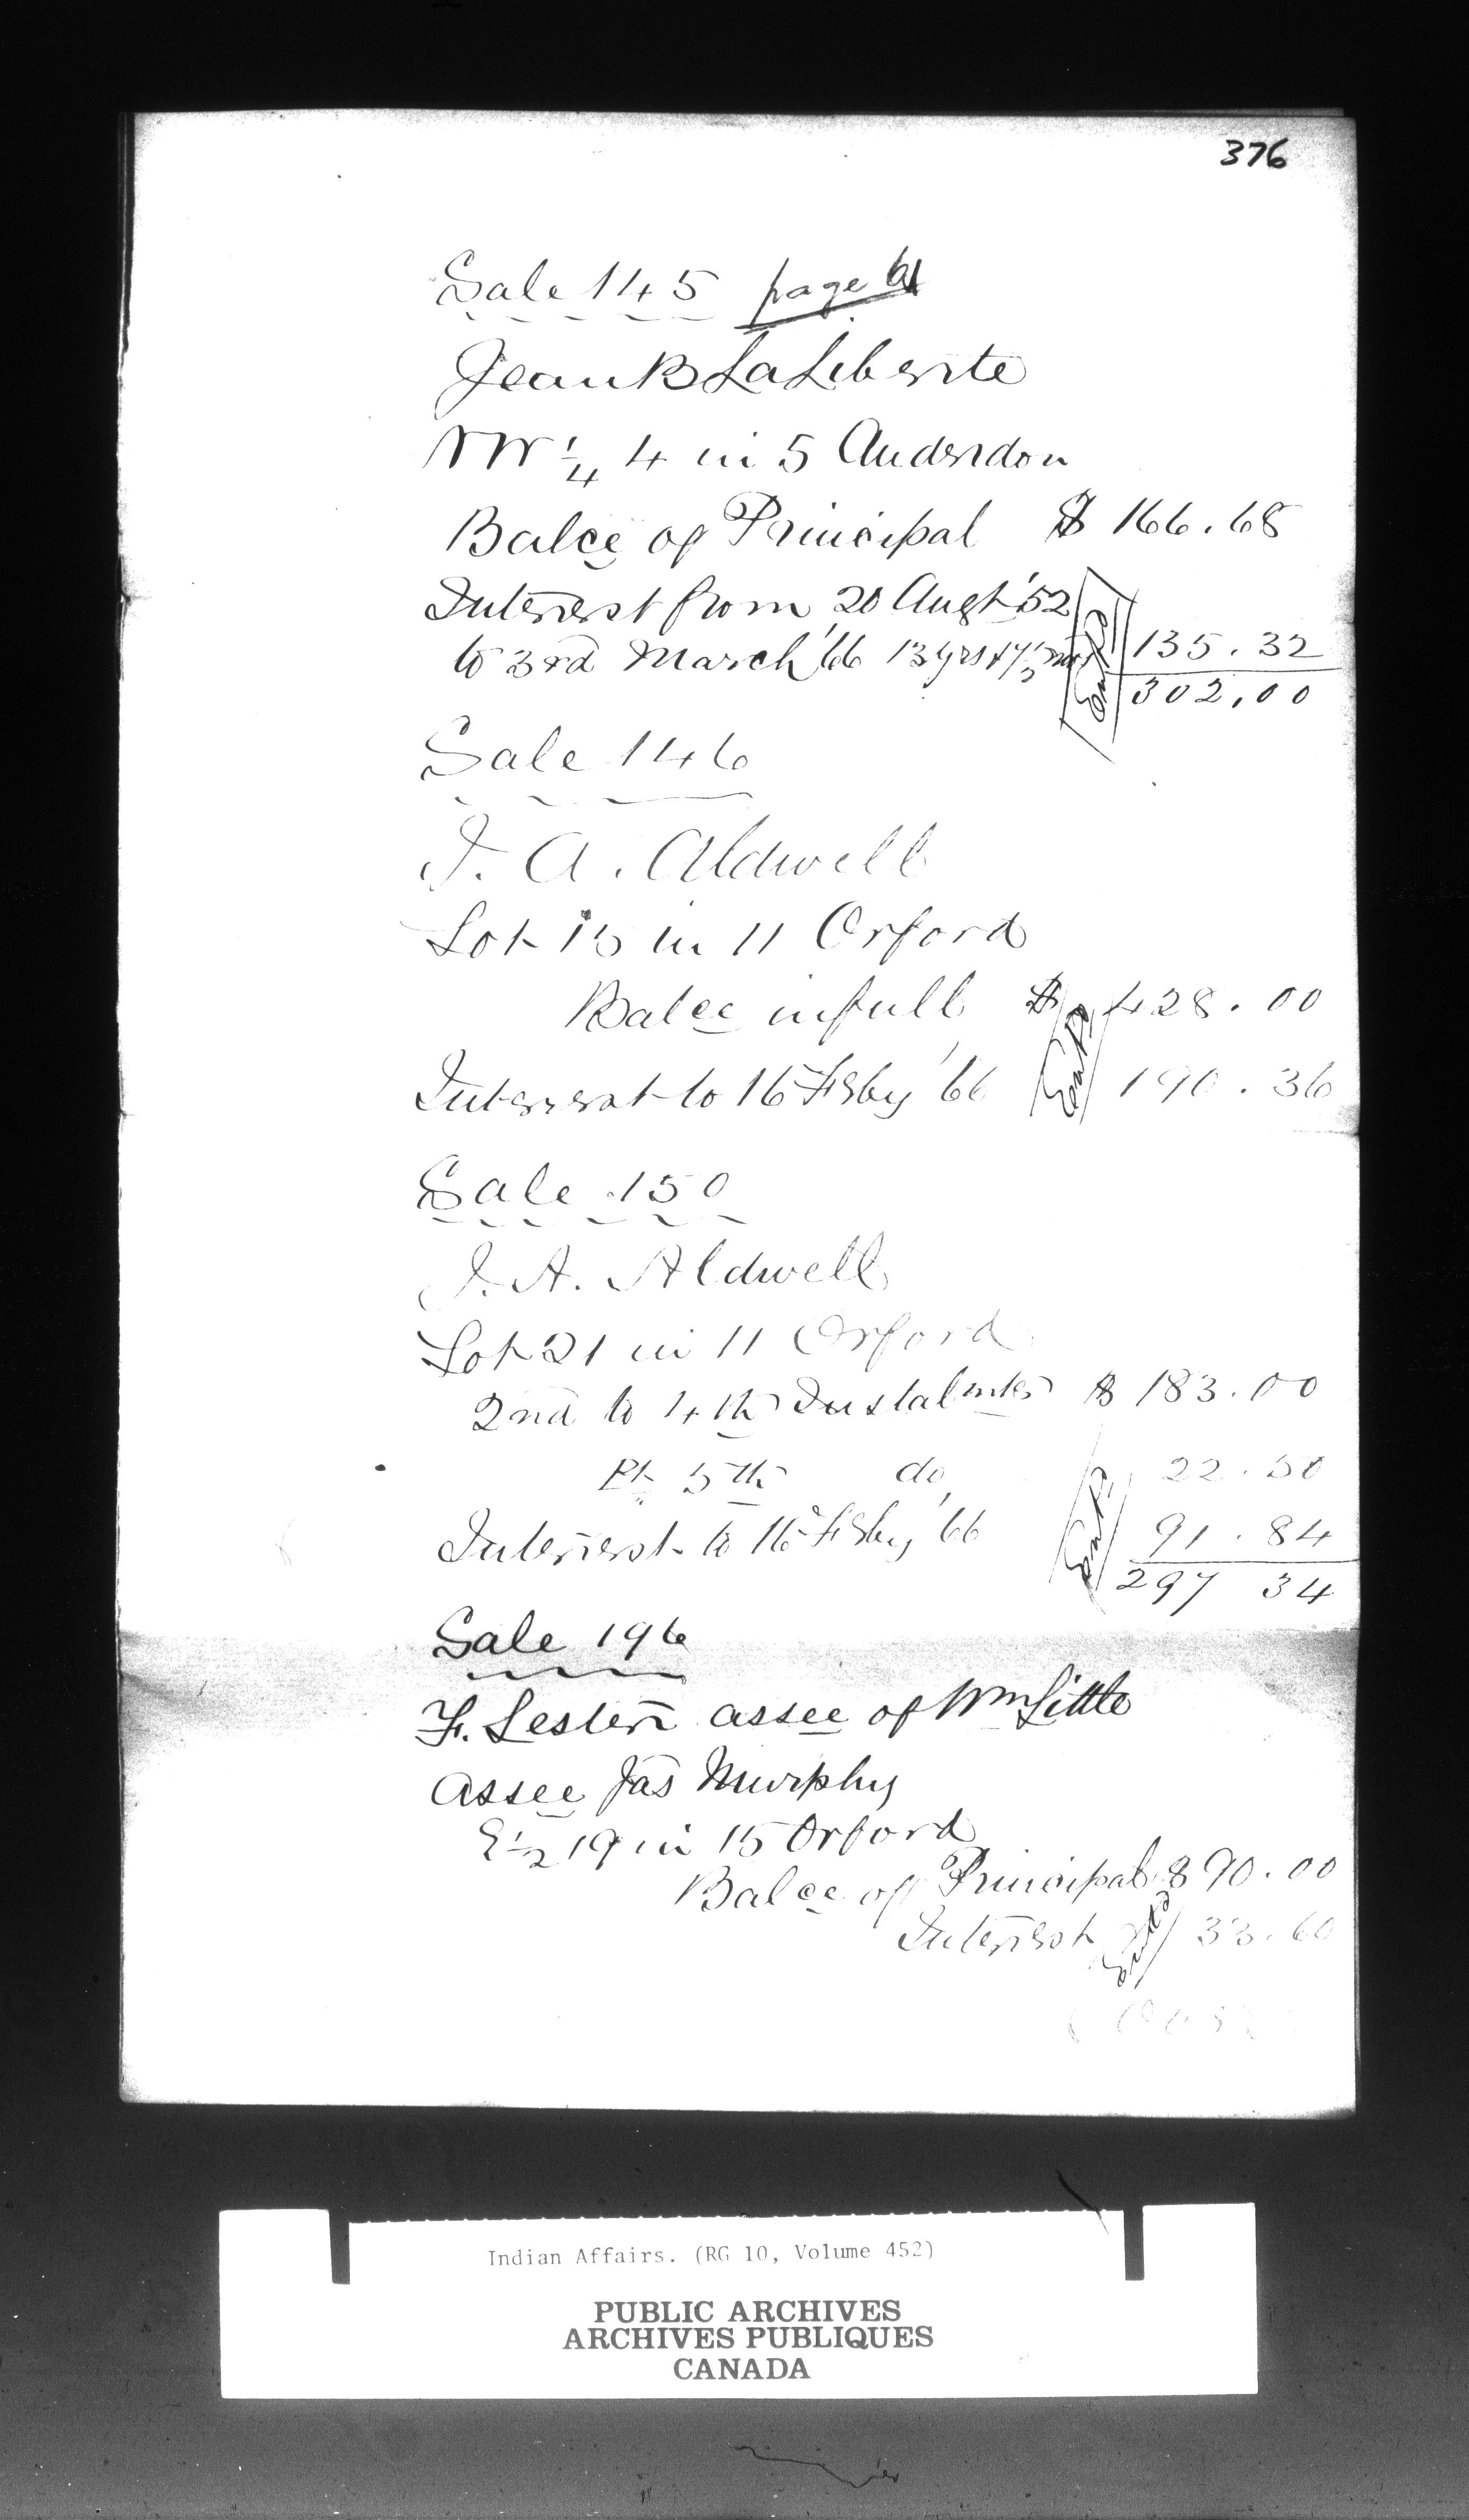 376
Sale 145 page 61
Jean B LaLiberte
NW 1/4 4 in 5 Anderdon
Balce of Principal $ 166.68
Interest from 20 Augt '52
to 3rd March '66 13 yrs & 6 1/2 mos 135.32
Entd
302.00
Sale 146
J. A. Aldwell
Lot 15 in 11 Orford
Balce in full $ 428.00
Interest to 16 Feby '66 Entd 190.36
Sale 150
J. A. Aldwell
Lot 21 in 11 Orford
2nd to 4th Instalmts $ 183.00
Pt 5th do 22.50
Interest to 16 Feby '66 Entd 91.84
297 34
Sale 196
F. Lester assee of Wm Little
Assee Jas Murphy
E 1/2 19 in 15 Orford
Balce of Principal $ 90.00
Interest Entd 33.60
Indian Affairs. (RG 10, Volume 452)
PUBLIC ARCHIVES
ARCHIVES PUBLIQUES
CANADA